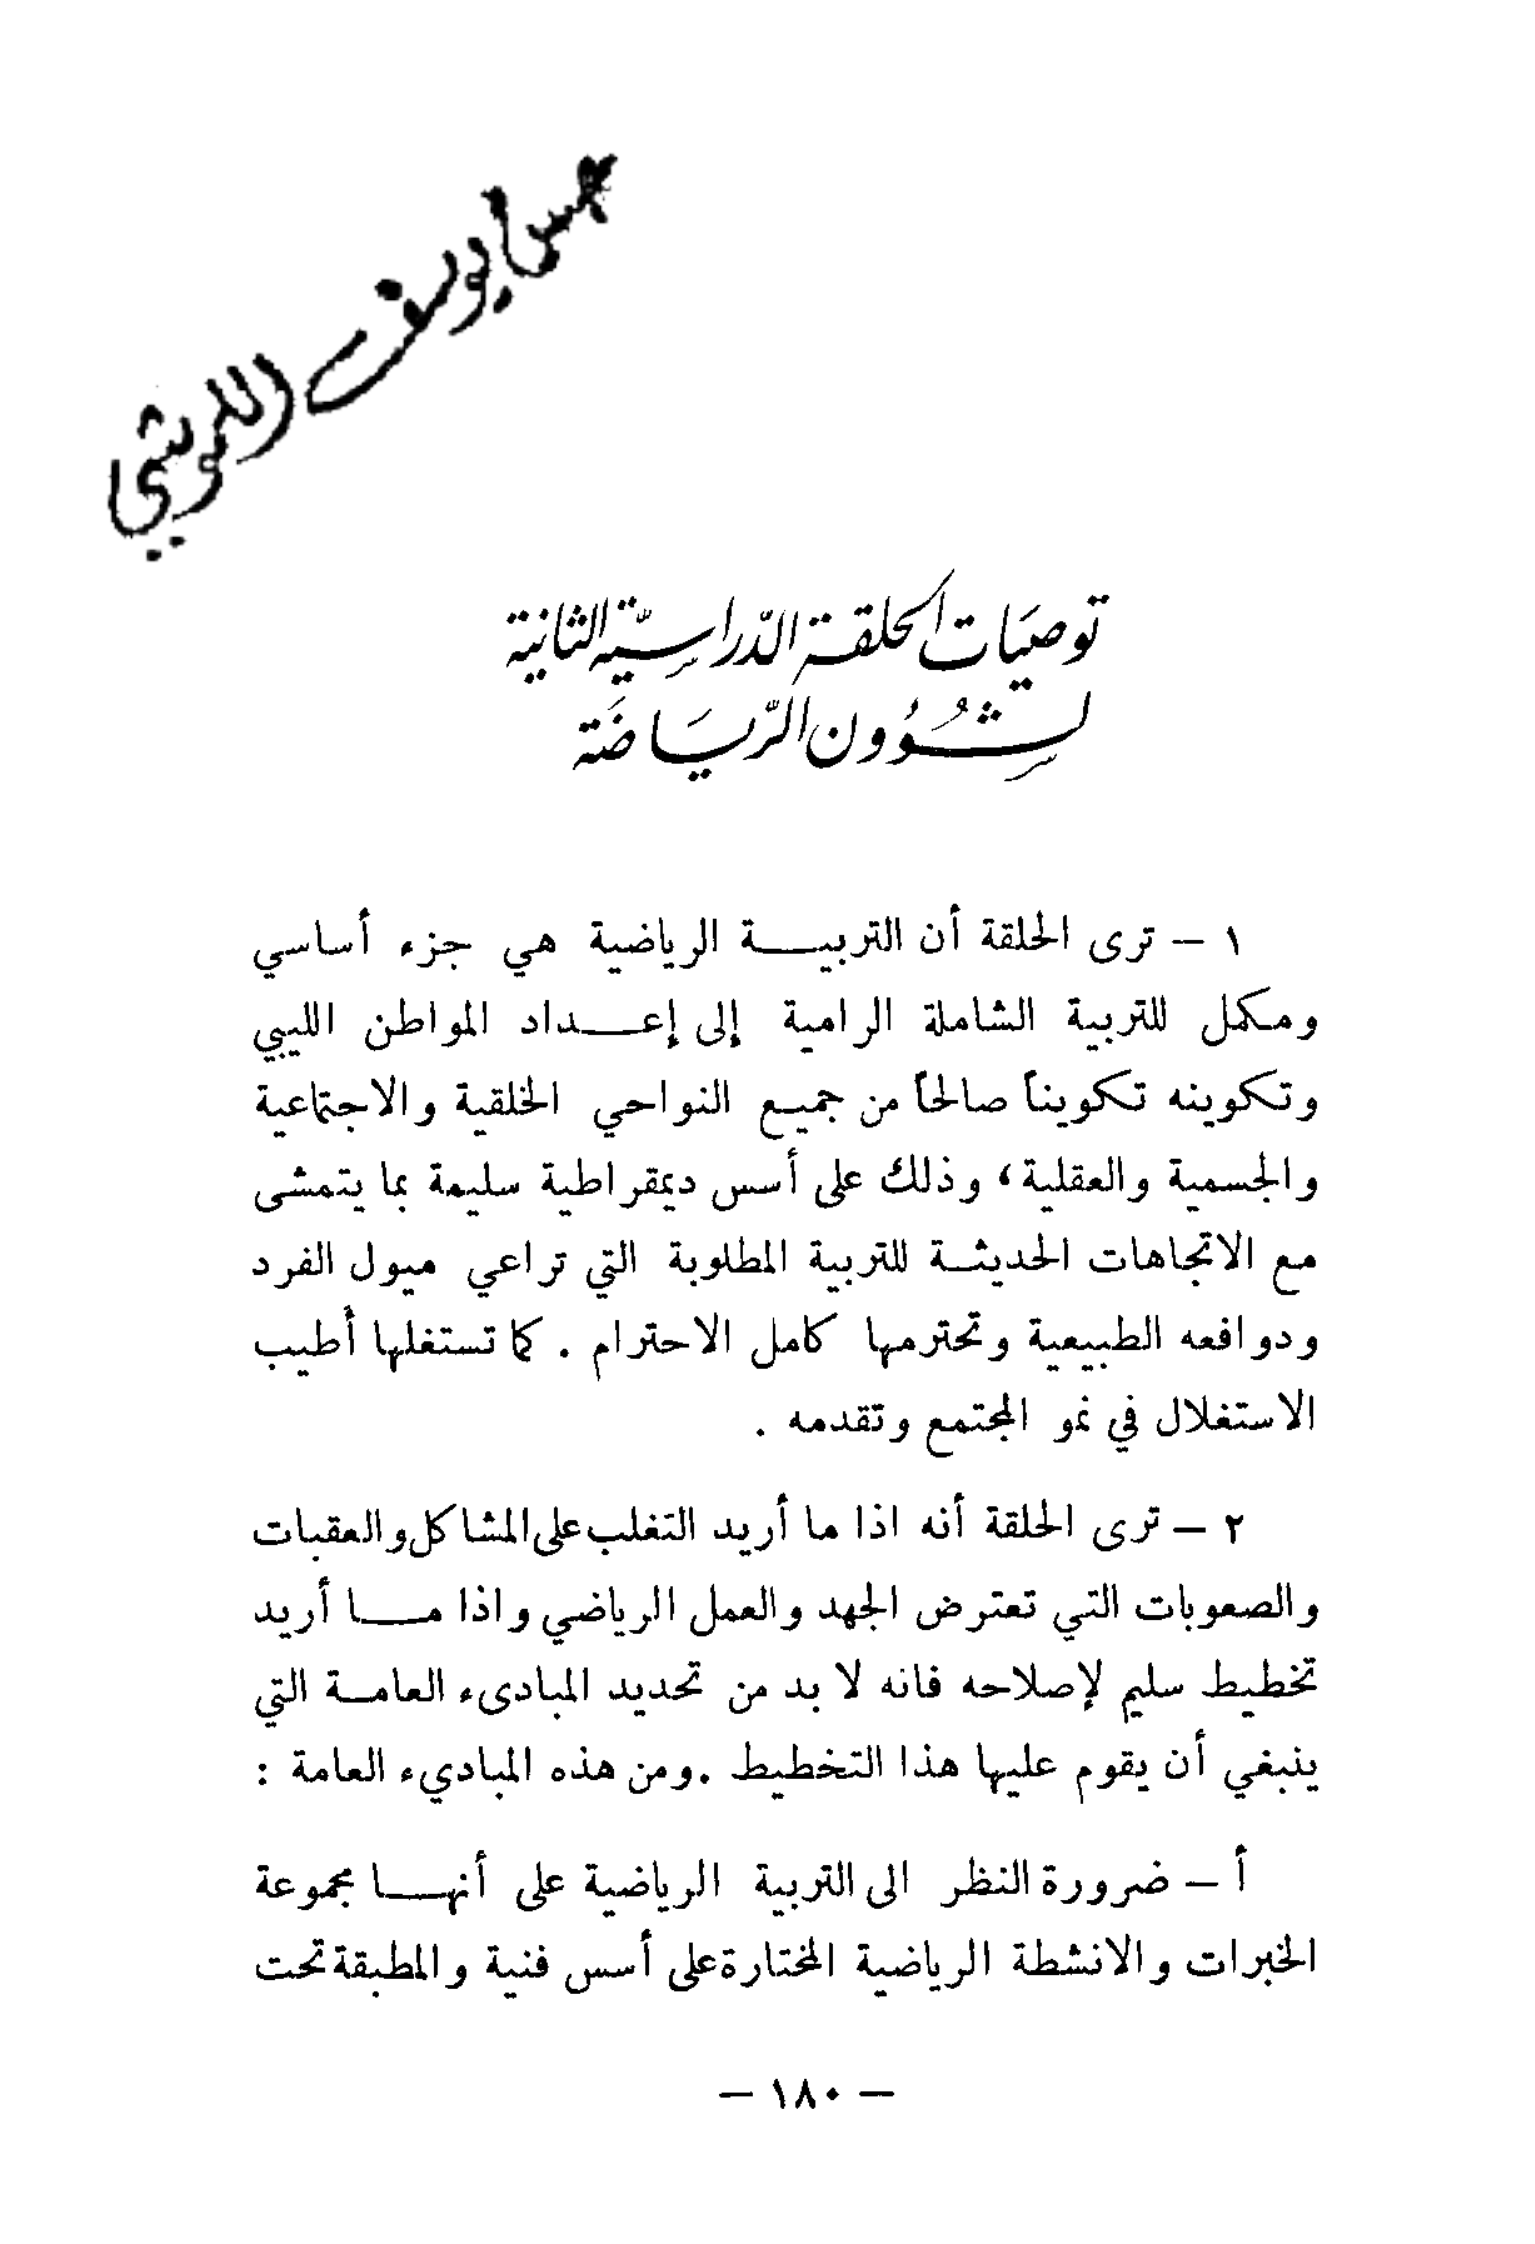 يوسف
توصيات الحلقة الدّراسيّة الثانية
لشُؤُون الرّيَاضَة
١ – ترى الحلقة أن التربيـــة الرياضية هي جزء أساسي
ومكمل للتربية الشاملة الرامية إلى إعـــداد المواطن الليبي
وتكوينه تكويناً صالحاً من جميع النواحي الخلقية والاجتماعية
والجسمية والعقلية، وذلك على أسس ديمقراطية سليمة بما يتمشى
مع الاتجاهات الحديثــة للتربية المطلوبة التي تراعي ميول الفرد
ودوافعه الطبيعية وتحترمها كامل الاحترام . كما تستغلها أطيب
الاستغلال في نمو المجتمع وتقدمه .
٢ – ترى الحلقة أنه اذا ما أريد التغلب على المشاكل والعقبات
والصعوبات التي تعترض الجهد والعمل الرياضي واذا مـــا أريد
تخطيط سليم لإصلاحه فانه لا بد من تحديد المبادىء العامــة التي
ينبغي أن يقوم عليها هذا التخطيط .ومن هذه المباديء العامة :
أ – ضرورة النظر الى التربية الرياضية على أنهـــا مجموعة
الخبرات والانشطة الرياضية المختارة على أسس فنية والمطبقة تحت
– ١٨٠ –